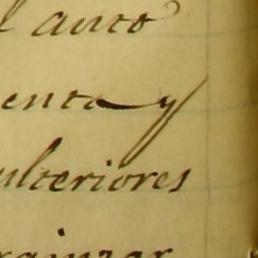 l auto
enta y
ulteriores